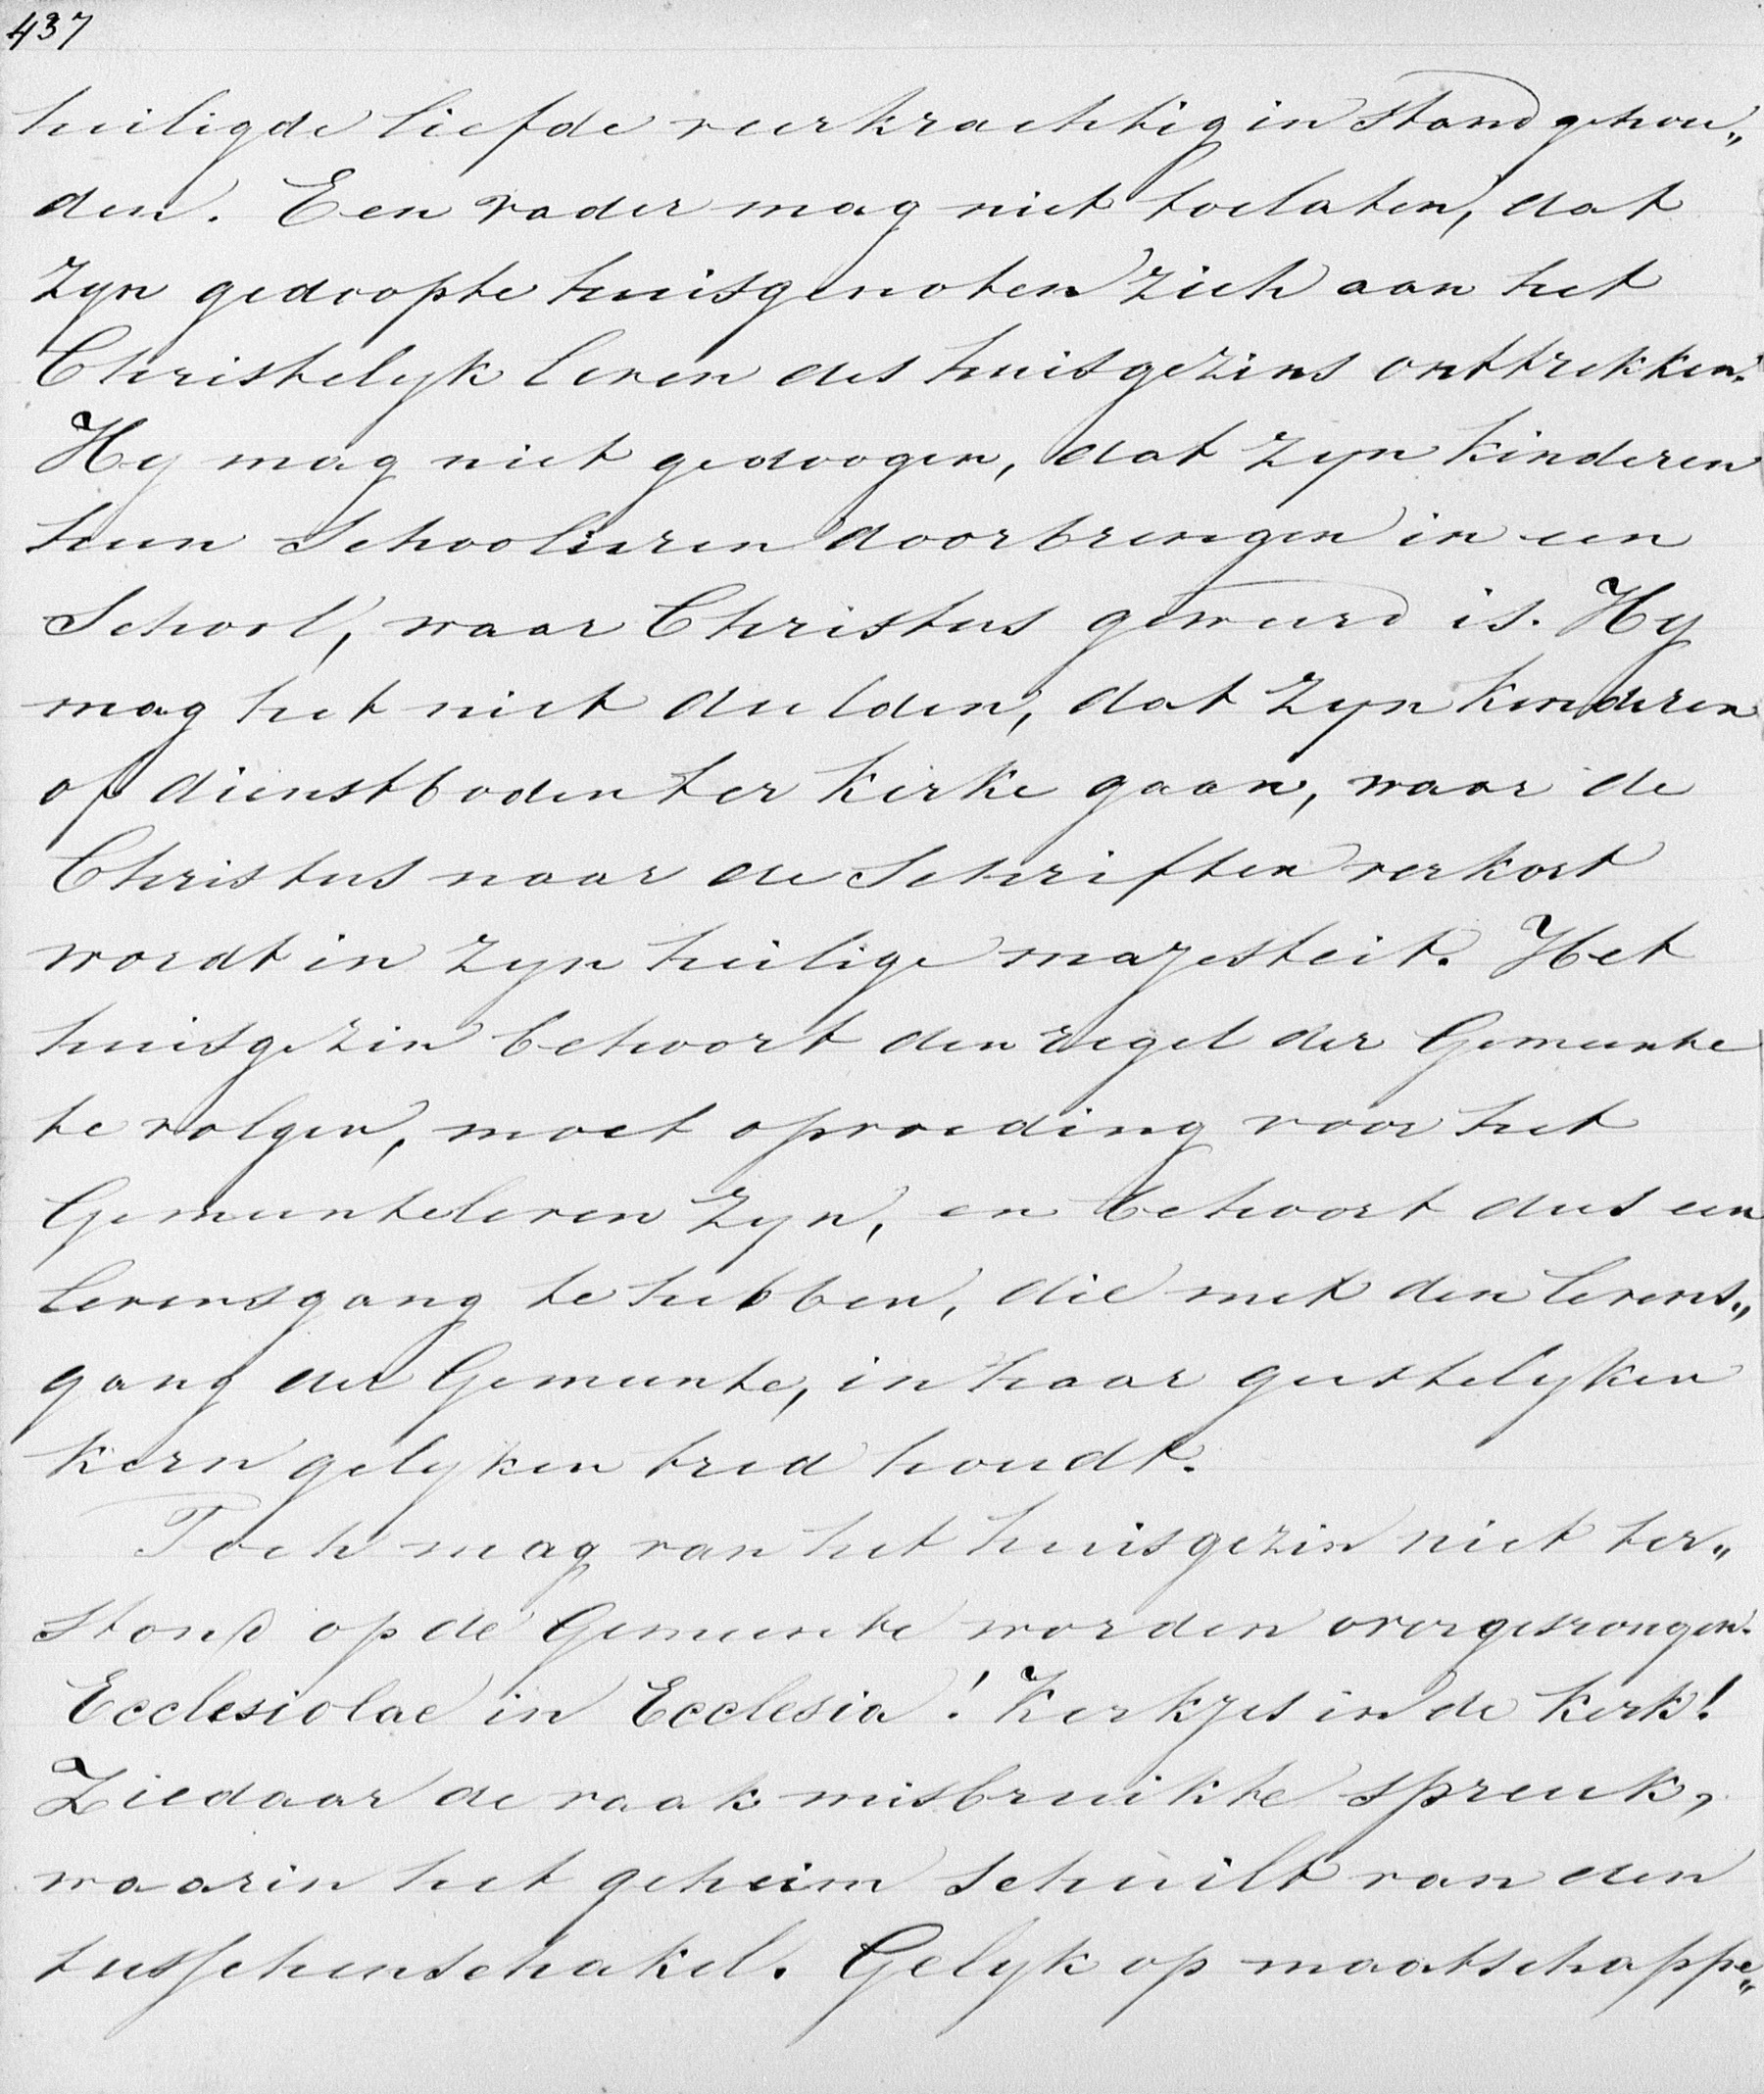 437
heiligde liefde veerkrachtig in stand gehou„
den. Een vader mag niet toelaten, dat
zyn gedoopte huisgenoten zich aan het
Christelyk leven des huisgezins onttrekken.
Hy mag niet gedoogen, dat zyn kinderen
hun schooluren doorbrengen in een
School, waar Christus geweerd is. Hy
mag het niet dulden, dat zyn kinderen
of dienstboden ter kerke gaan, waar de
Christus naar de Schriften verkort
wordt in zyn heilige majesteit. Het
huisgezin behoort den regel der Gemeente
te volgen, moet opvoeding voor het
Gemeenteleven zyn, en behoort dus een
levensgang te hebben, die met den levens„
gang der Gemeente, in haar geestelyken
kern gelyken tred houdt.
Toch mag van het huisgezin niet ter„
stond op de Gemeente worden overgesprongen.
Ecclesiolae in Ecclesia! Kerkjes in de kerk!
Ziedaar de vaak misbruikte spreuk,
waarin het geheim schuilt van den
tusschenschakel. Gelyk op maatschappe„